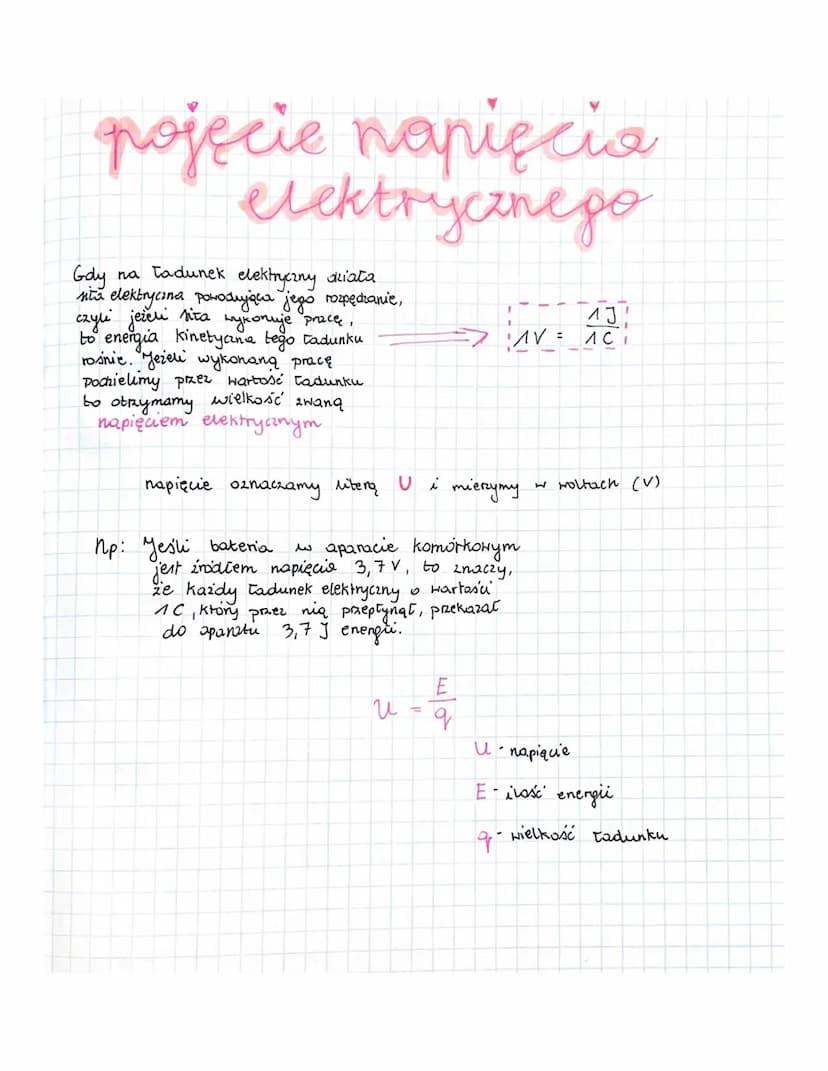 pojęcie napięcia
elektrycznego
Gdy na ładunek elektryczny działa
siła elektryczna powodująca jego rozpędzanie,
czyli jeżeli siła wykonuje pracę,
to energia kinetyczna tego ładunku
rośnie. Jeżeli wykonaną pracę
podzielimy przez wartość ładunku
to otrzymamy wielkość zwaną
napięciem elektrycznym
1V = 1J / 1C
napięcie oznaczamy literą U i mierzymy w woltach (V)
Np: Jeśli bateria w aparacie komórkowym
jest źródłem napięcia 3,7 V, to znaczy,
że każdy ładunek elektryczny o wartości
1C, który przez nią przepłynął, przekazał
do aparatu 3,7 J energii.
U = E / q
U - napięcie
E - ilość energii
q - wielkość ładunku